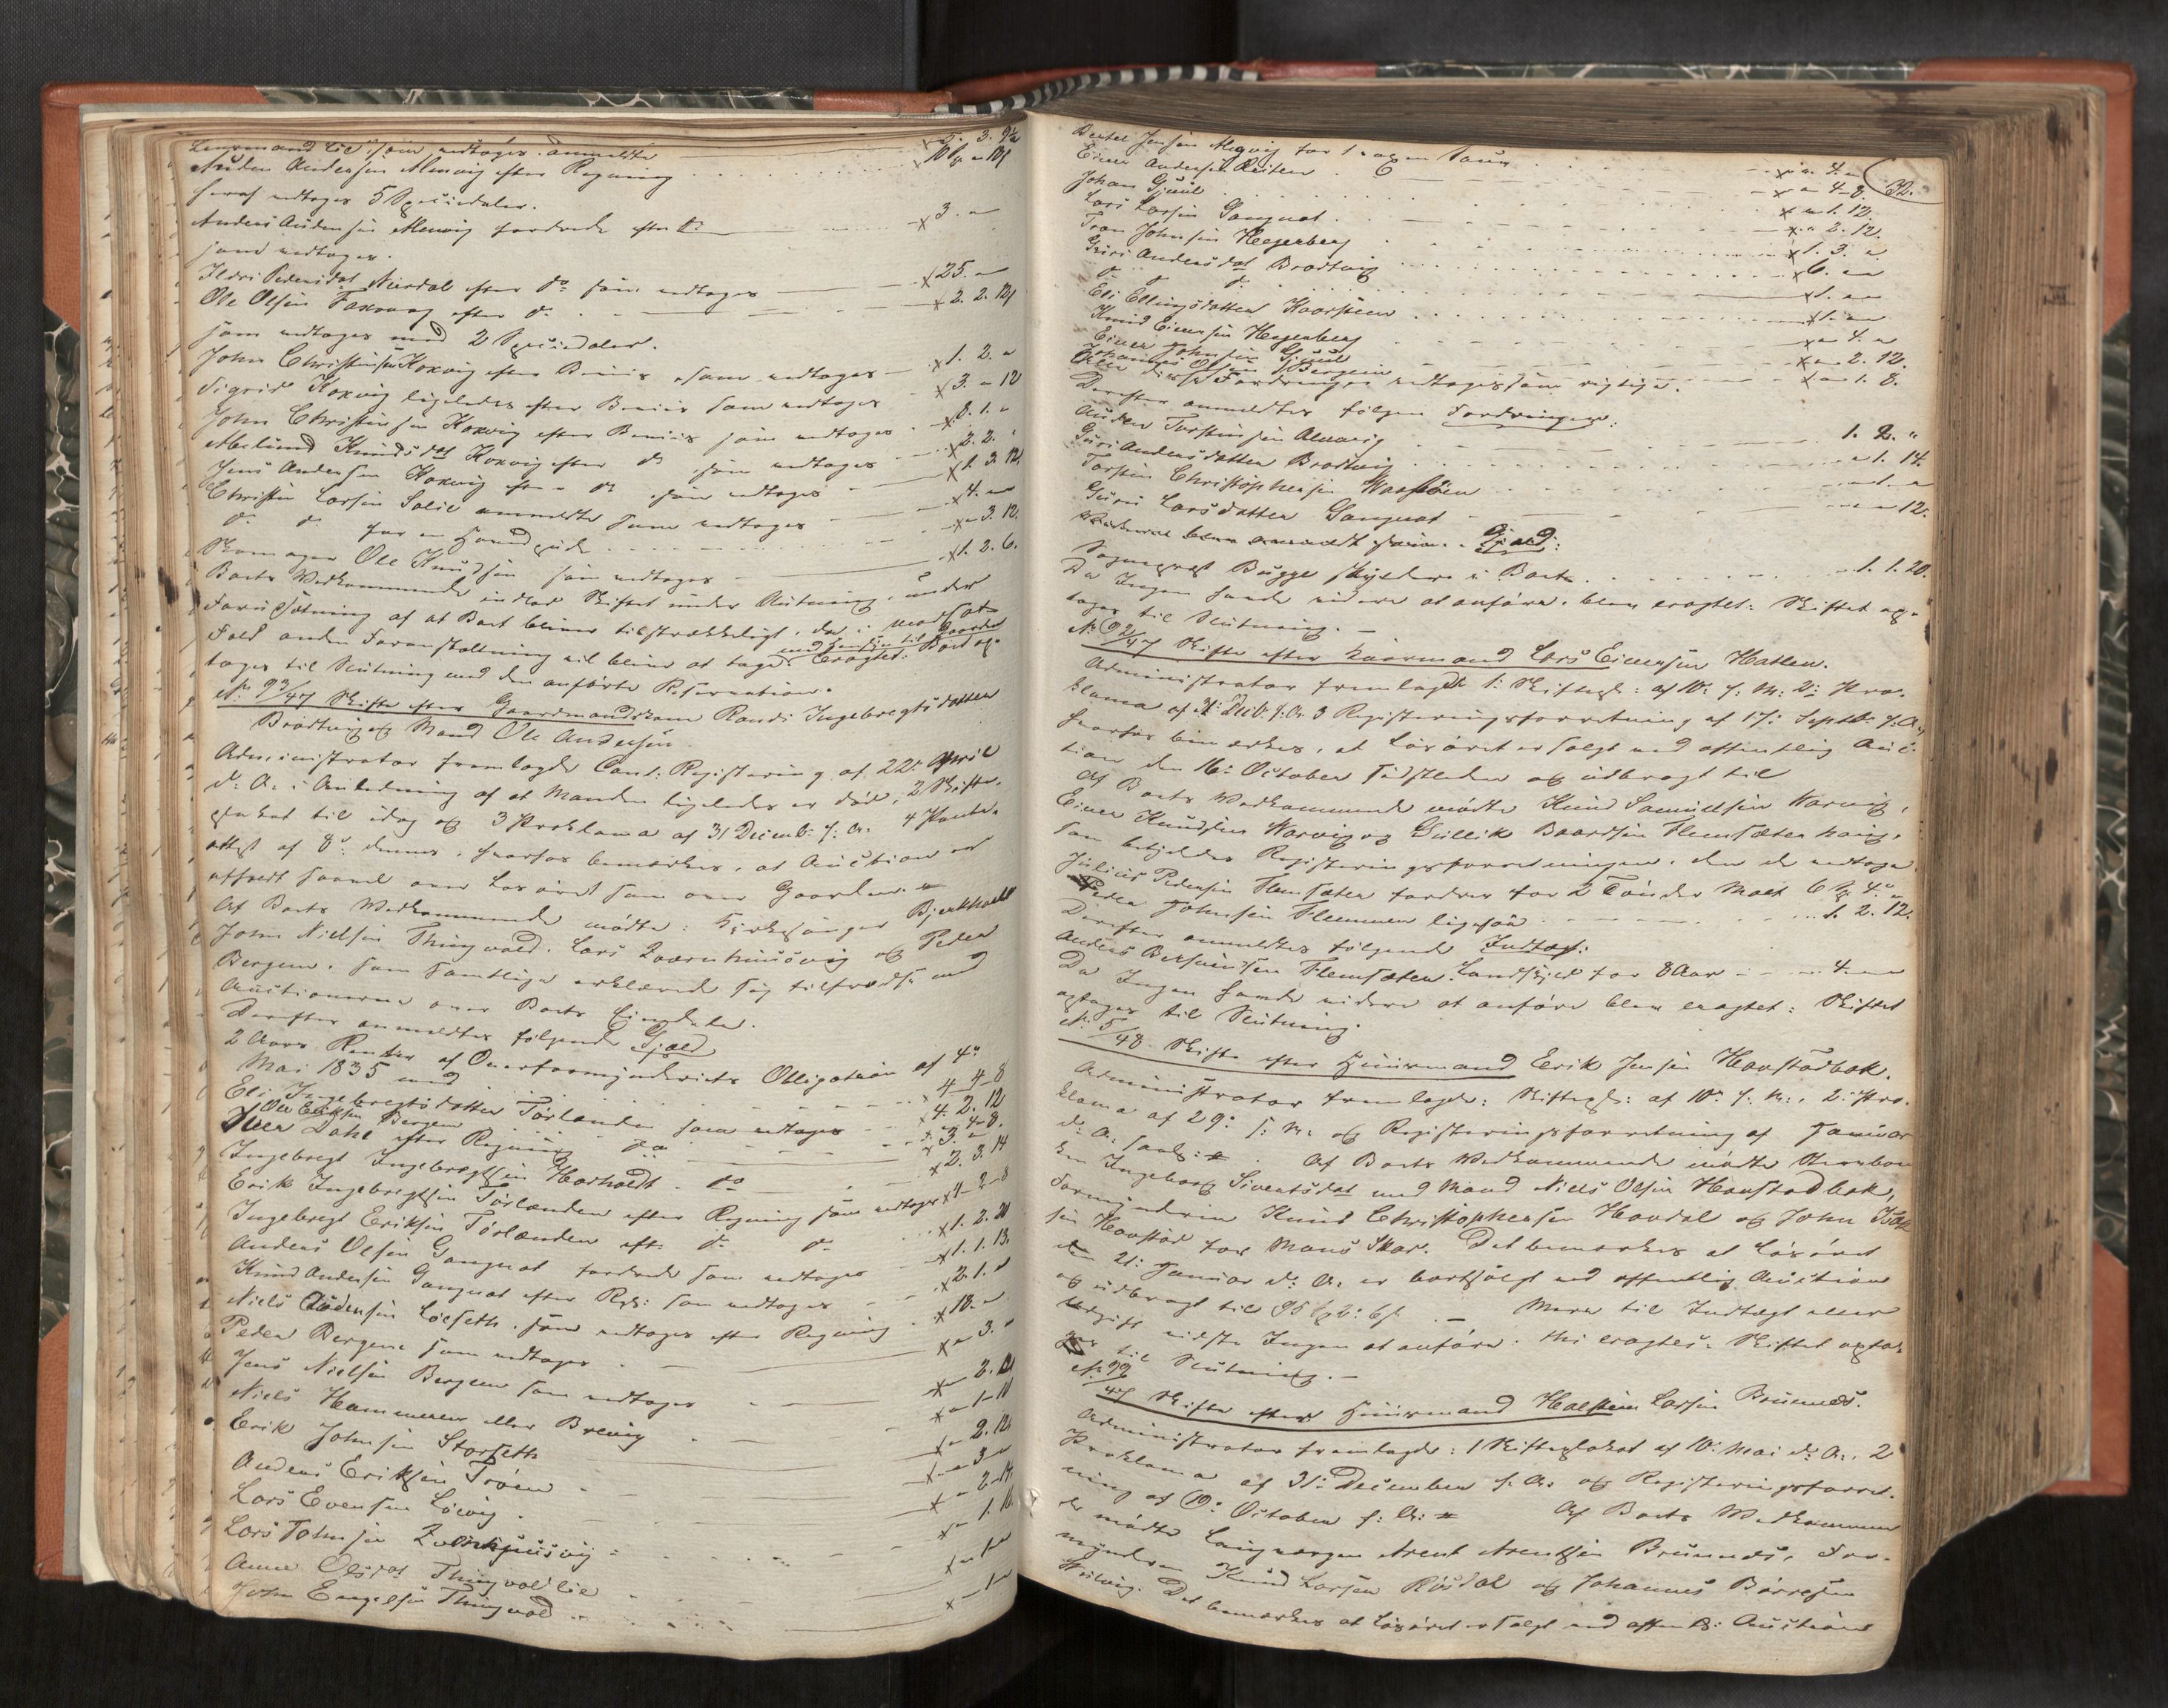 Leermand Lie som vedtages anmeldte x 5. 3. 9½
Auden Andersen Mevig efter Regning x 10
heraf vedtages 5 Speciedaler.
Anders Audensen Mevig fordrede efter do x 3. "
som vedtages.
Ildri Pedersdat Nierdal efter do som vedtages x 25. "
Ole Olsen Faxvaag efter do x 2. 2. 12
som vedtages med 2 Speciedaler.
John Christensen Koxvig efter Beviis som vedtages x 1. 2. "
Sigrid Koxvig ligeledes efter Beviis som vedtages x 3. " 12
John Christensen Koxvig efter Beviis som vedtages x 8. 1. "
Knudsdat Koxvig efter do som vedtages x 2. 2. "
Jens Andersen Koxvig efter do som vedtages x 1. 3. 12.
Christen Larsen Solie anmeldte som vedtages x 4. "
do do for en x " 3. 12.
Skomager Ole Knudsen som vedtages x 1. 2. 6.
Boets Vedkommende indlod Skiftet under Slutning, under
Forudsætning af at Boet bliver tilstrækkeligt, da i modsat
Fald anden Foranstaltning vil blive at tage med Hensyn til Gaarden Eragtet: Boet op-
tages til Slutning med den anførte Reservation.
No 93/47 Skifte efter Gaardmandskone Randi Ingebregtsdatter
Brodtvig og Mand Ole Andersen.
Administrator fremlagde Cont: Registering af 22de April
d: A: i Anledning af at Manden ligeledes er død, 2 Skifte-
plakat til idag og 3 Proklama af 31 Decemb: f: A: 4 Pante-
attest af 8de dennes, hvorfor bemærkes, at Auction er
afholdt saavel over Løsøret som over Gaarden.
Af Boets Vedkommende mødte: Kirkesanger Bjerkholdt
John Nielsen Thingvold, Lars Qværnhuusvig og Peder
Bergem, som samtlige erklærede sig tilfreds med
Auctionerne over Boets Eiendele.
Derefter anmeldtes følgende Gjæld
2 Aars Renter af Overformynderiets Obligation af 4de
Mai 1835 med x 4 - 4 - 8
Eli Ingebregtsdatter Tørlanden som vedtages x 4. 2. 12
Ole Eriksen Bergem
Iver Dahl efter Regning do x 3. "
Ingebregt Ingebregtsen Harholdt do x 2. 3. 14
Erik Ingebregtsen Tørlanden efter Regning som vedtages x 1 - 2 - 8
Ingebregt Eriksen Tørlanden eft. do do x 1. 2. 20
Anders Olsen Gangnat fordrede som vedtages x 1. 1. 13.
Knud Andersen Gangnat efter Reg: som vedtages x 2. 1. "
Niels Løeseth, som vedtages efter Regning x 18. "
Peder Bergem som vedtages x " 3. "
Jens Nielsen Bergem som vedtages x " 2. 12
Niels Hammeren eller Brevig x " 1 - 11
Erik Johnsen Storseth x " 2. 12
Anders Eriksen Trøen x " 3 "
Lars Evensen Løevig x " 2 - 14
Lars Johnsen Qværnhuusvig x " 1. 16
Anne Olsdat Thingvoldlie x " 1 "
John Engelsen Thingvold x " 1 "
32.
Bertel Jensen Megvig for 1 x " 4. "
Einer Andersen Reiten x " 4 - 8.
Johan Gjuul x " 1. 12.
Lars Larsen Gangnat x " 2. 12.
Tron Johnsen Hegerberg x 1. 3. "
Guri Andersdat Brodtvig x 6. "
do do x 1. "
Eli Ellingsdatter Kaarsteen x 1. "
Knud Einersen Hegerberg x " 4. "
Einer Johnsen Gjuul x " 2. 12.
Johannes Olsen Bergem x " 1. 8.
Alle disse Fordringer vedtages som rigtige.
Derefter anmeldtes følgende Fordringer:
Auden Torstensen Alvavig 1. 2. "
Guri Andersdatter Brodtvig " 1. 14.
Torsten Christophersen " 1. "
Guri Larsdatter Gangnat " " 12.
blev anmeldt som Gjæld:
Sogneprest Bugge skylder i Boet 1. 1. 20.
Da Ingen havde videre at anføre, blev eragtet: Skiftet op-
tages til Slutning. -
No 92/47 Skifte efter Huusmand Lars Einersen Hatlen.
Administrator fremlagde 1: Skifteplk: af 10de f: M: 2: Pro-
klama af 31: Decb: f: A: 3 Registeringsforretning af 17: Septbr f: A:,
hvorfor bemærkes, at Løsøret er solgt ved offentlig Auc-
tion den 16de October sidstleden og udbragt til
Af Boets Vedkommende mødte Knud Samuelsen Worvig,
Einer Knudsen Worvig og Gullik Baardsen Flemsæterhaug,
som betjeldes Registeringsforretningen, den de vedtage
Julius Pedersen Flemsæter fordrer for 2 Tønder Malt 6 4
Peder Johnsen Flemmen ligesaa 1. 2. 12.
Derefter anmeldtes følgende Indtægt:
Anders Flemsæter Landskyld for 8 Aar 4 "
Da Ingen havde videre at anføre blev eragtet: Skiftet
optages til Slutning.
No 5/48 Skifte efter Huusmand Erik Jensen Havstadbak.
Administrator fremlagde: Skifteplk: af 10de f: M:, 2: Pro-
klama af 29de f: M: og Registeringsforretning af Januar
d: A: Af Boets Vedkommende mødte Stervboe
ken Ingeborg Sivertsdat med Mand Niels Olsen Havstadbak,
Formynderen Knud Christophersen Hovdal og John
sen Havstad for Mons Skar. Det bemærkes at Løsøret
den 21: Januar d: A: er bortsolgt ved offentlig Auction
og udbragt til 95 2: 6 . - Mere til Indtægt eller
Udgift vidste Ingen at anføre. Thi eragtes: Skiftet opta-
ges til Slutning. -
No 99/47 Skifte efter Huusmand Halsten Larsen Brunnes.
Administrator fremlagde: 1 Skifteplakat af 10: Mai d: A:, 2
Proklama af 31: December f: A: og Registeringsforret-
ning af 19: October f: A: Af Boets Vedkommen
de mødte Laugværgen Arent Arentsen Brunnes, For-
mynderen Knud Larsen Røsdal og Johannes Børresen
Det bemærkes at Løsøret er solgt ved offentlig: Auction